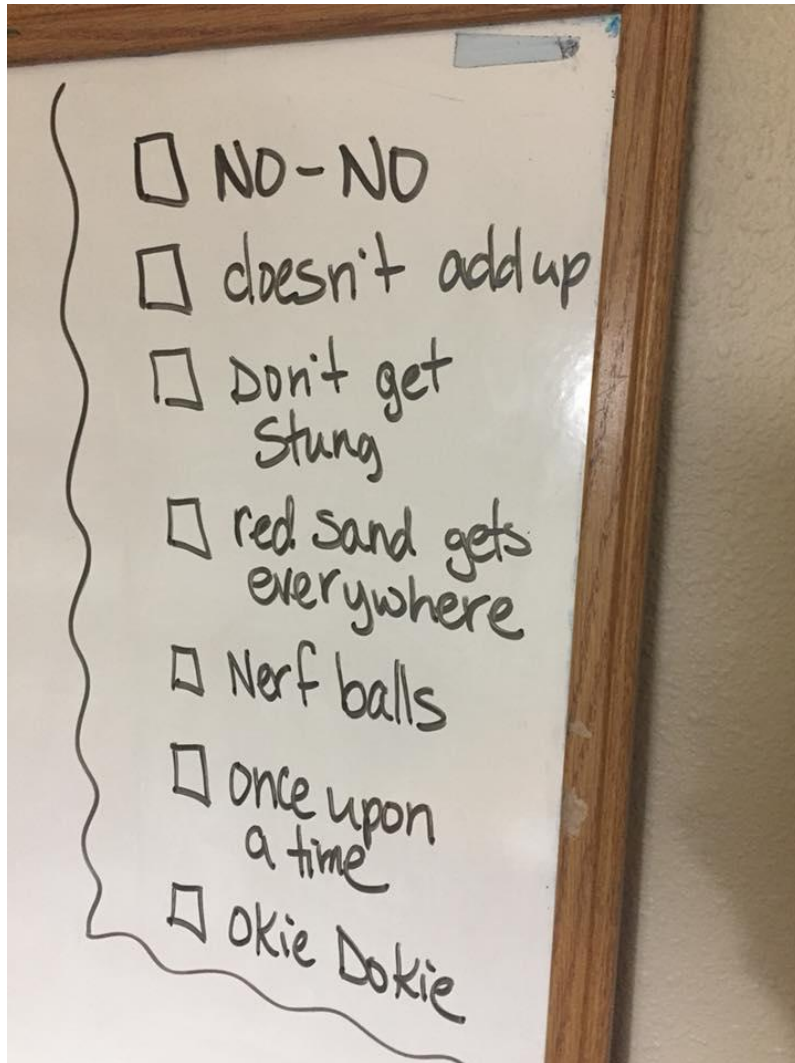 NO-NO
doesn't add up
Don't get
Stung
red sand gets
everywhere
Nerf balls
once upon
a time
Okie Dokie